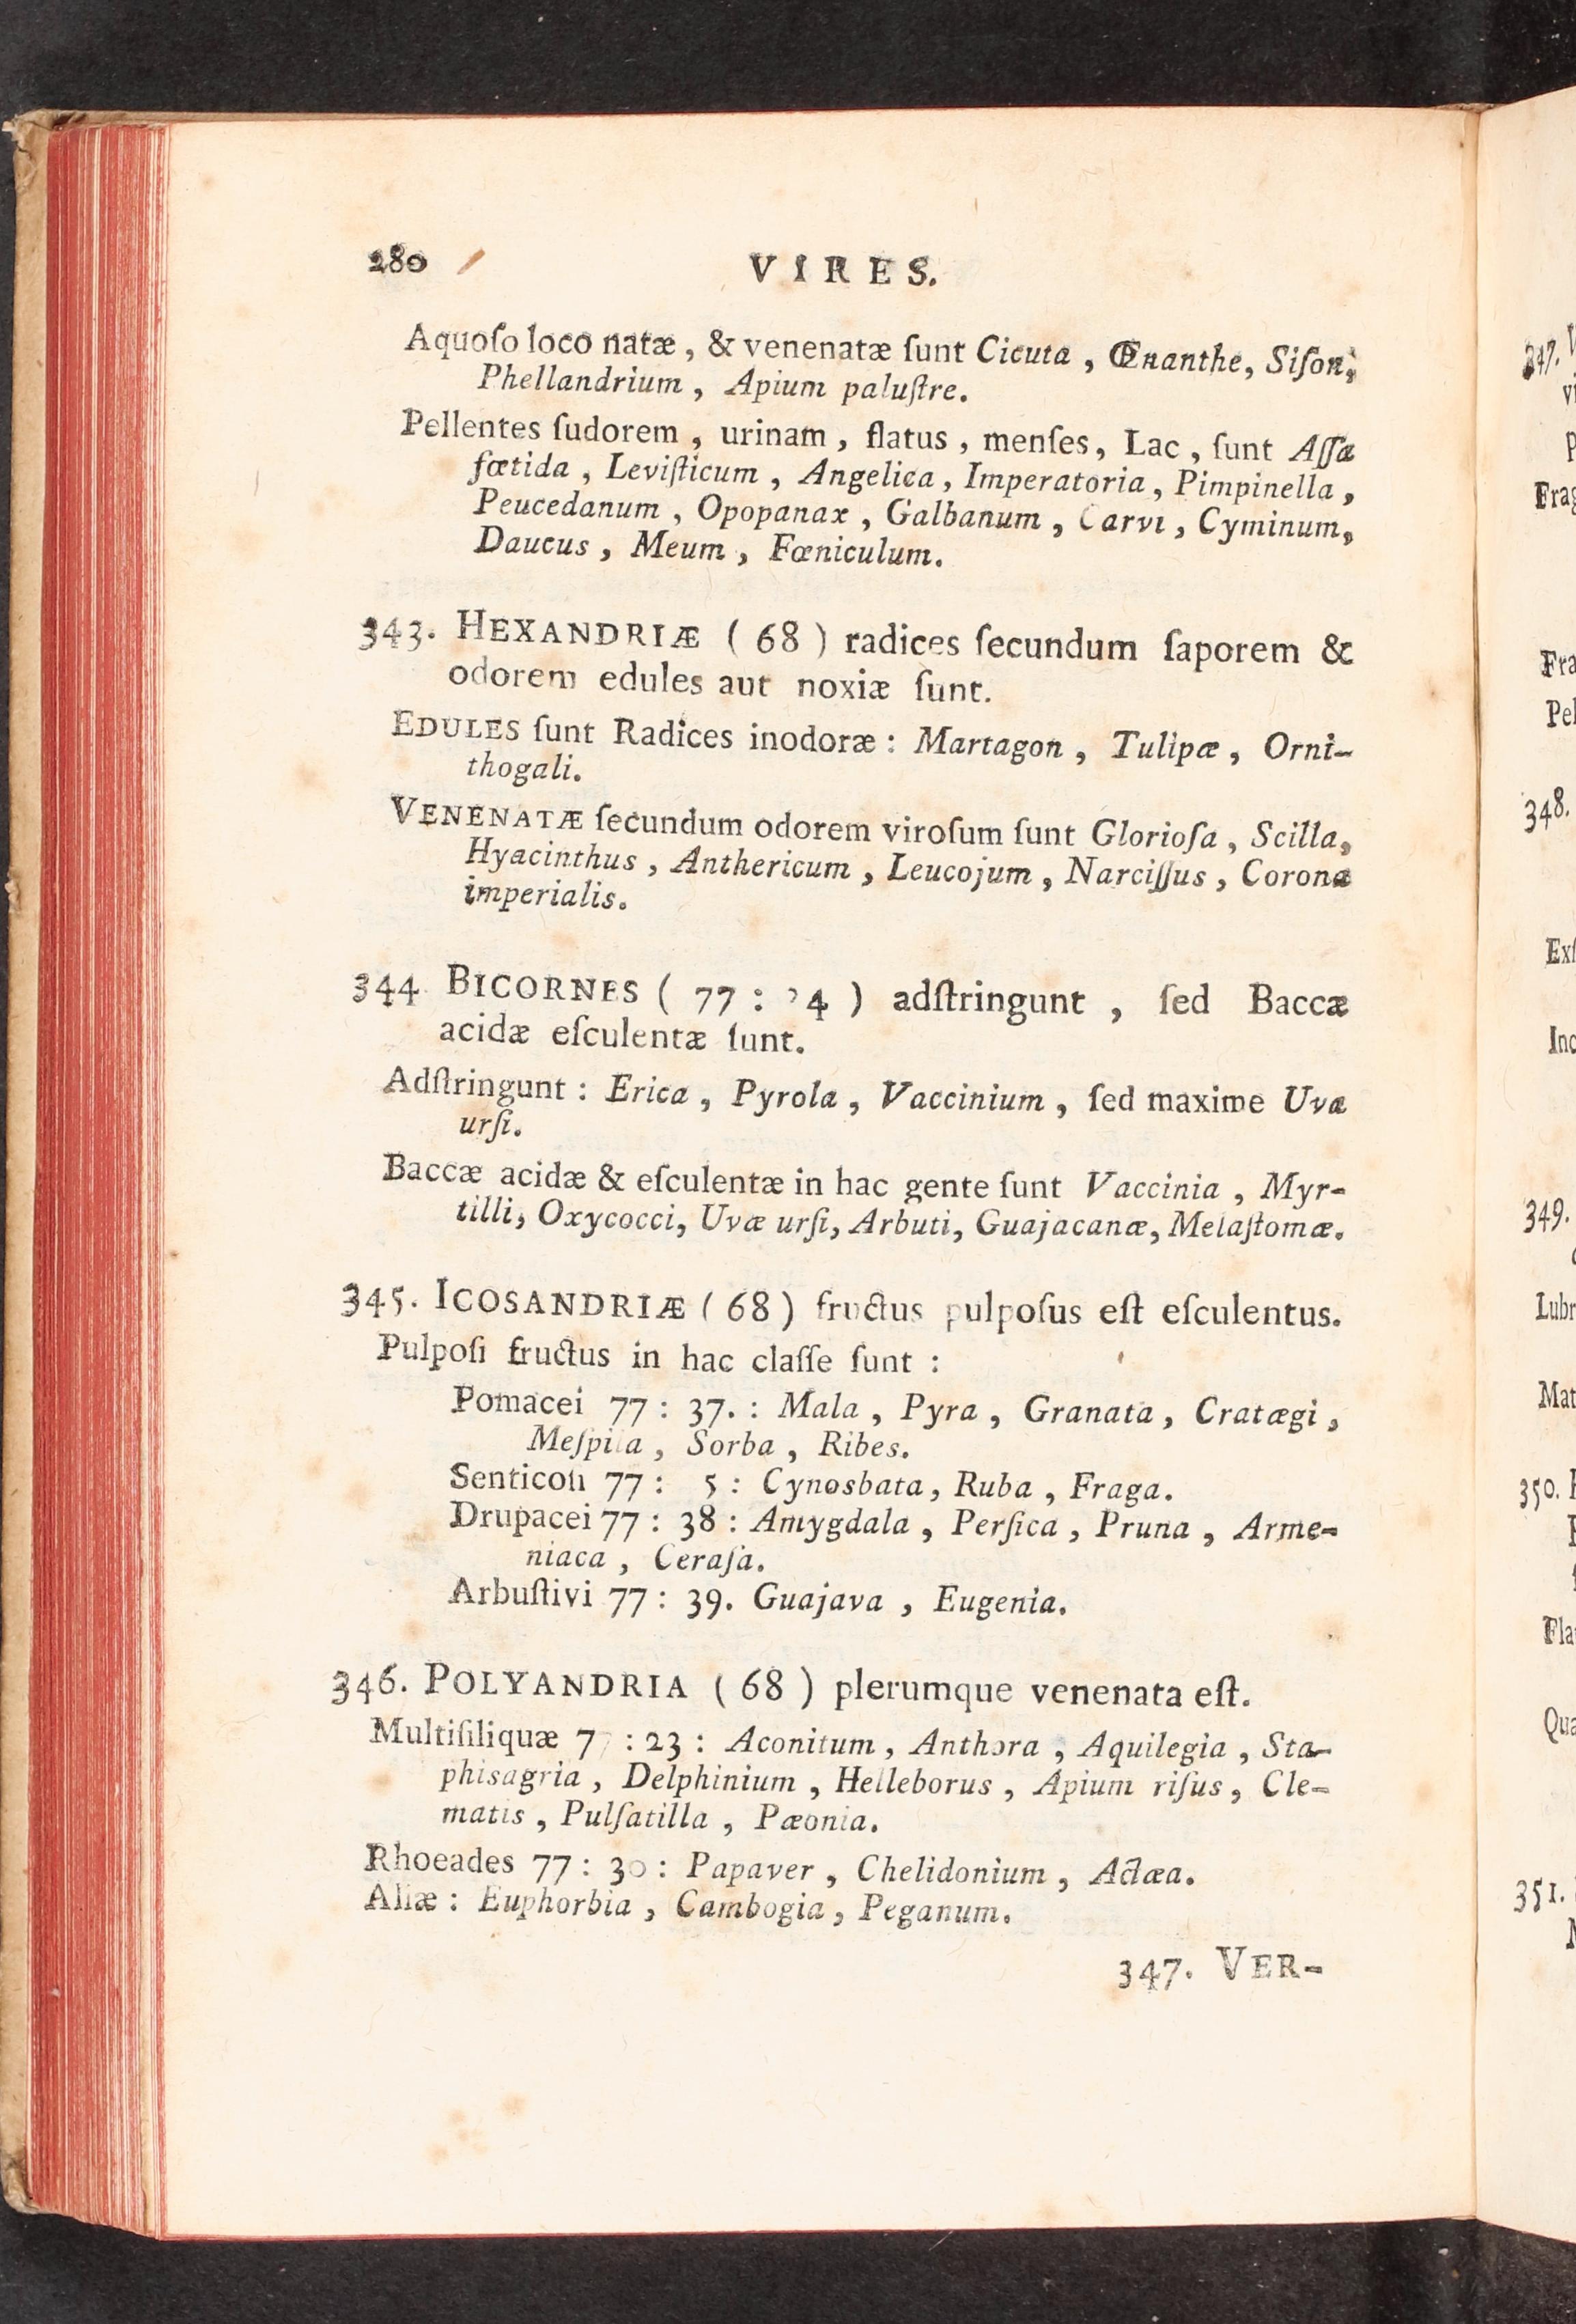 280
VIRES.
Aquoſo loco natæ, & venenatæ ſunt Cicuta, Œnanthe, Siſon,
Phellandrium, Apium paluſtre.
Pellentes ſudorem, urinam, flatus, menſes, Lac, ſunt Aſſa
fœtida, Leviſticum, Angelica, Imperatoria, Pimpinella,
Peucedanum, Opopanax, Galbanum, Carvi, Cyminum,
Daucus, Meum, Fœniculum.
343. HEXANDRIÆ (68) radices ſecundum ſaporem &
odorem edules aut noxiæ ſunt.
EDULES ſunt Radices inodoræ: Martagon, Tulipæ, Orni-
thogali.
VENENATÆ ſecundum odorem viroſum ſunt Glorioſa, Scilla,
Hyacinthus, Anthericum, Leucojum, Narciſſus, Corona
imperialis.
344 BICORNES (77: 24) adſtringunt, ſed Baccæ
acidæ eſculentæ ſunt.
Adſtringunt: Erica, Pyrola, Vaccinium, ſed maxime Uva
urſi.
Baccæ acidæ & eſculentæ in hac gente ſunt Vaccinia, Myr-
tilli, Oxycocci, Uvæ urſi, Arbuti, Guajacanæ, Melaſtomæ.
345. ICOSANDRIÆ (68) fructus pulpoſus eſt eſculentus.
Pulpoſi fructus in hac claſſe ſunt:
Pomacei 77: 37.: Mala, Pyra, Granata, Cratægi,
Meſpila, Sorba, Ribes.
Senticoſi 77: 5: Cynosbata, Ruba, Fraga.
Drupacei 77: 38: Amygdala, Perſica, Pruna, Arme-
niaca, Ceraſa.
Arbuſtivi 77: 39. Guajava, Eugenia.
346. POLYANDRIA (68) plerumque venenata eſt.
Multiſiliquæ 77: 23: Aconitum, Anthora, Aquilegia, Sta-
phisagria, Delphinium, Helleborus, Apium riſus, Cle-
matis, Pulſatilla, Pæonia.
Rhoeades 77: 30: Papaver, Chelidonium, Actæa.
Aliæ: Euphorbia, Cambogia, Peganum.
347. VER-
347.
Frag
Fra
Pel
348.
Exſ
Inc
349.
Lubr
Mat
350.
Fla
Qua
351.